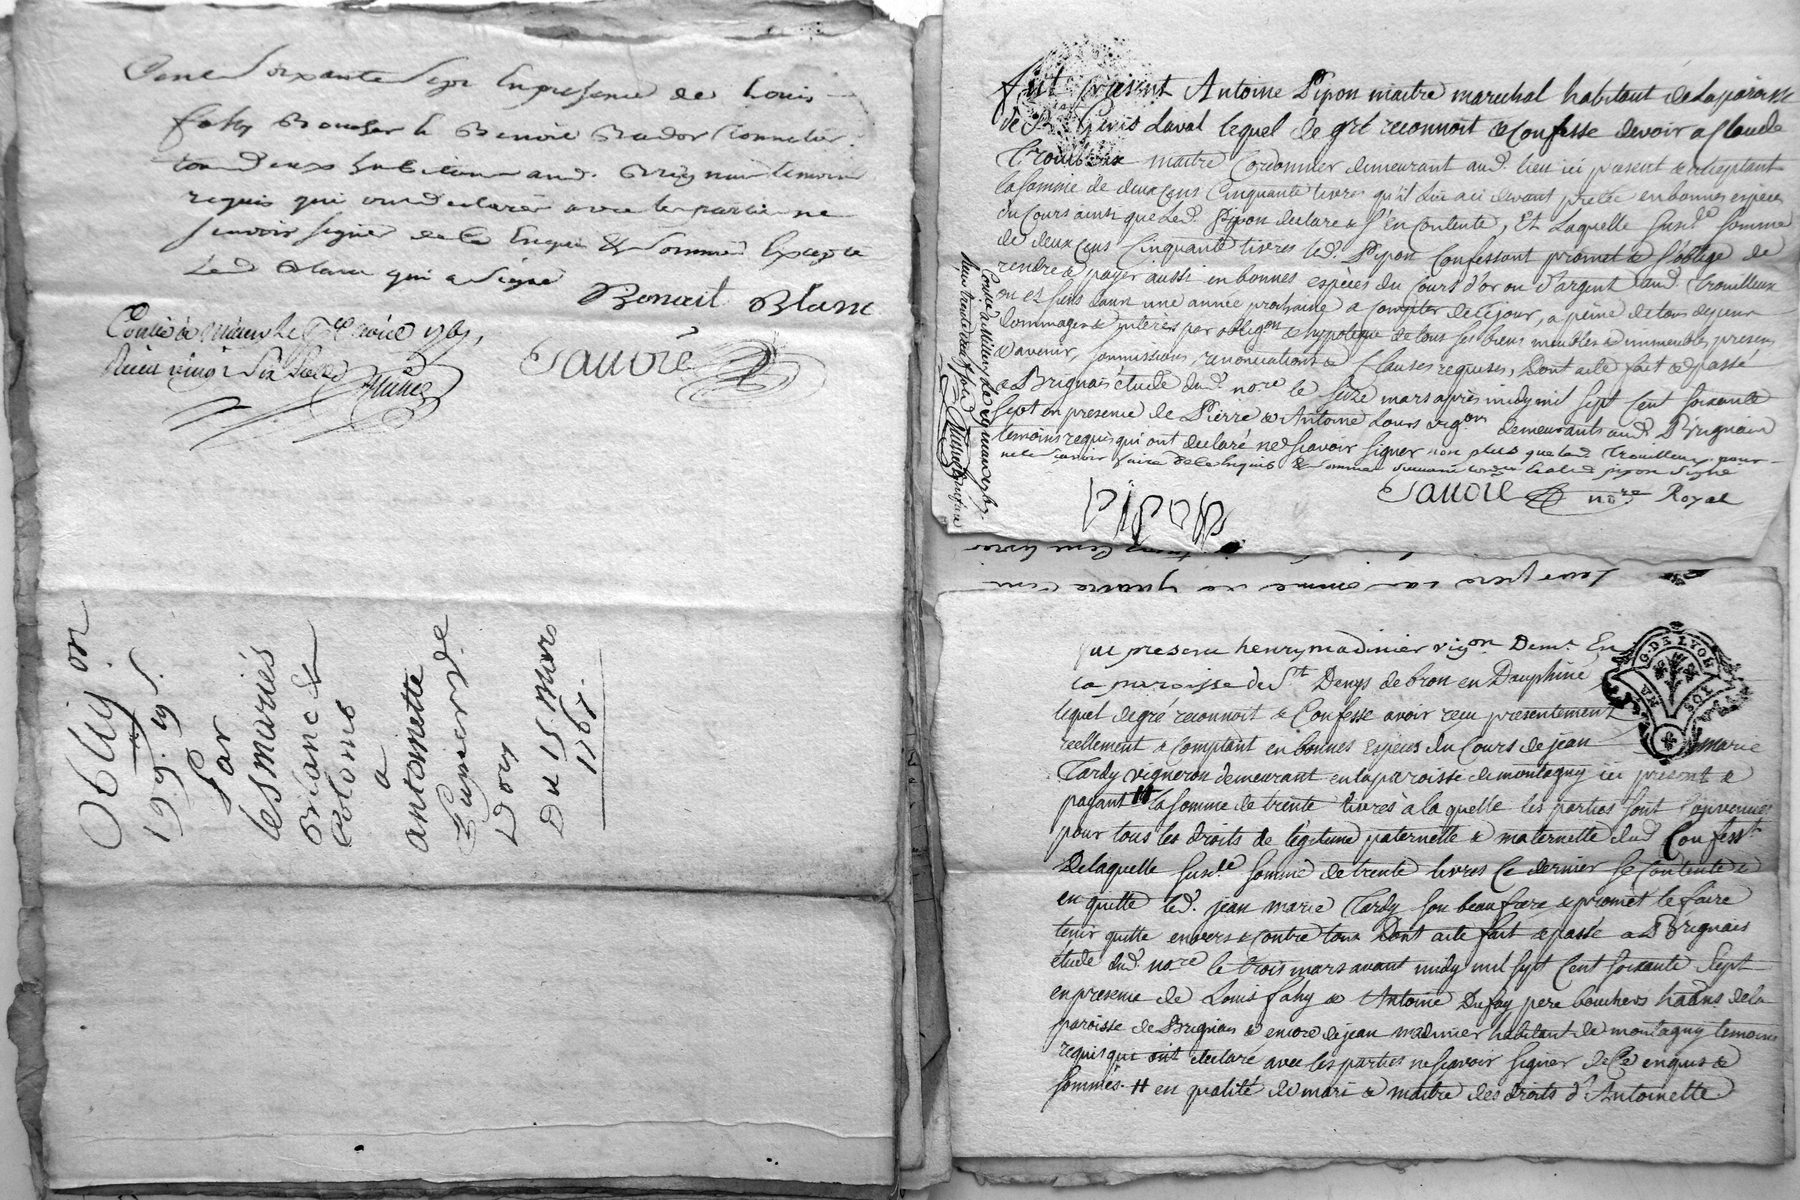 Cent Soixante Sept En presence de Louis
fahy Boucher & Benoit Bador Tonnelier
tous deux habitans aud. Brignais temoins
requis qui ont declaré avec les parties ne
scavoir signer de ce Enquis & Sommés Excepté
Led Blanc qui a Signé
Benoit Blanc
Sauvie
Oblig on
19 9. 67
Par
les mariés
Blanc &
Colomb
a
antoinette
Du 15 Mars
1767.
fut present Antoine Pipon maitre marechal habitant de la paroisse
de St Genis Laval lequel de gré reconnoit & Confesse devoir a Claude
Trouilleux maitre Cordonnier demeurant aud. lieu ici present & acceptant
la somme de deux Cens Cinquante livres qu'il lui a ci devant pretée en bonnes espèces
du Cours ainsi que led. Pipon declare & s'En Contente, Et Laquelle Susd.e Somme
de deux Cens Cinquante livres led. Pipon Confessant promet & s'oblige de
rendre & payer aussi en bonnes espèces du Cours d'or ou d'argent aud. Trouilleux
ou es siens dans une année prochaine a Compter de Ce jour, a peine de tous depens
dommages & interès par oblig.on & hypoteque de tous ses biens meubles & immeubles presens
& avenir, soumissions, renonciations & Clauses requises, Dont acte fait & passé
a Brignais étude dud. no.re le Seize mars après midy mil Sept Cent Soixante
Sept en presence de Pierre & Antoine Lours vig.ons demeurants aud. Brignais
temoins requis qui ont declaré ne scavoir signer non plus que led. Trouilleux pour
ne le scavoir faire de ce Enquis & Sommés led. pipon signé
Sauvie no.re Royal
fut present henry madinier vig.on Dem.t En
la paroisse de S.nt Denys de bron en Dauphiné
lequel de gré reconnoit & Confesse avoir recu presentement
reellement & Comptant en bonnes Espèces du Cours de jean marie
Tardy vigneron demeurant en la paroisse de montagny ici present &
payant # la Somme de trente livres à la quelle les parties sont Convenues
pour tous les droits de légitime paternelle & maternelle dud. Confess.t
De laquelle Susd.e Somme de trente livres Ce dernier se Contente &
en quitte led. jean marie Tardy son beaufrere & promet le faire
tenir quitte envers & Contre tous Dont acte fait & passé a Brignais
étude dud. no.re le trois mars avant midy mil Sept Cent Soixante Sept
en presence de Louis fahy & Antoine Dufay pere bouchers hãans de la
paroisse de Brignais & encore de jean madinier habitant de montagny temoins
requis qui ont declaré avec les parties ne scavoir signer de Ce enquis &
sommés. # en qualité de mari & maitre des droits d'Antoinette
G. DE LYON